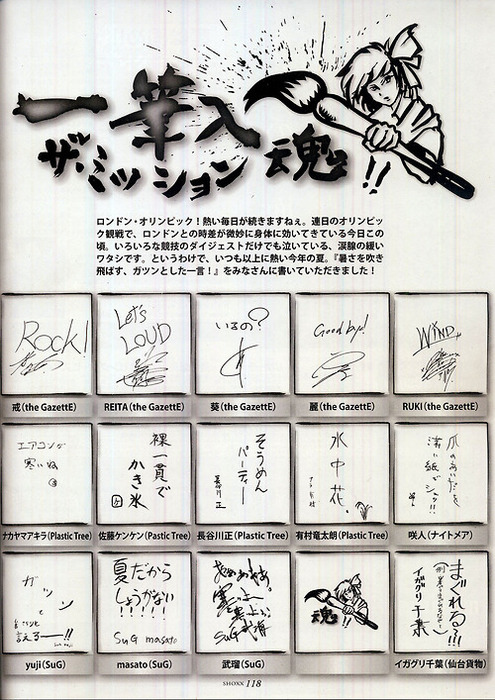 一筆入魂!!
ザ・ミッション
ロンドン・オリンピック！熱い毎日が続きますねぇ。連日のオリンピ
ック観戦で、ロンドンとの時差が微妙に身体に効いてきている今日この
頃。いろいろな競技のダイジェストだけでも泣いている、涙腺の緩い
ワタシです。というわけで、いつも以上に熱い今年の夏。『暑さを吹き
飛ばす、ガツンとした一言！』をみなさんに書いていただきました！
Rock!
戒(the GazettE)
Let's
LOUD
REITA(the GazettE)
いるの?
葵(the GazettE)
Good by!
麗(the GazettE)
WIND
RUKI(the GazettE)
エアコンが
寒いね
ナカヤマアキラ(Plastic Tree)
裸一貫で
かき氷
佐藤ケンケン(Plastic Tree)
そうめん
パーティー
長谷川正
長谷川正(Plastic Tree)
水中花。
有村竜太朗(Plastic Tree)
咲人(ナイトメア)
ガツン
と
言えるー!!
yuji(SuG)
夏だから
しょうがない
!!!!!
SuG masato
masato(SuG)
SuG 武瑠
武瑠(SuG)
魂!!
まぐれる!!!
イガグリ千葉
イガグリ千葉(仙台貨物)
SHOXX 118